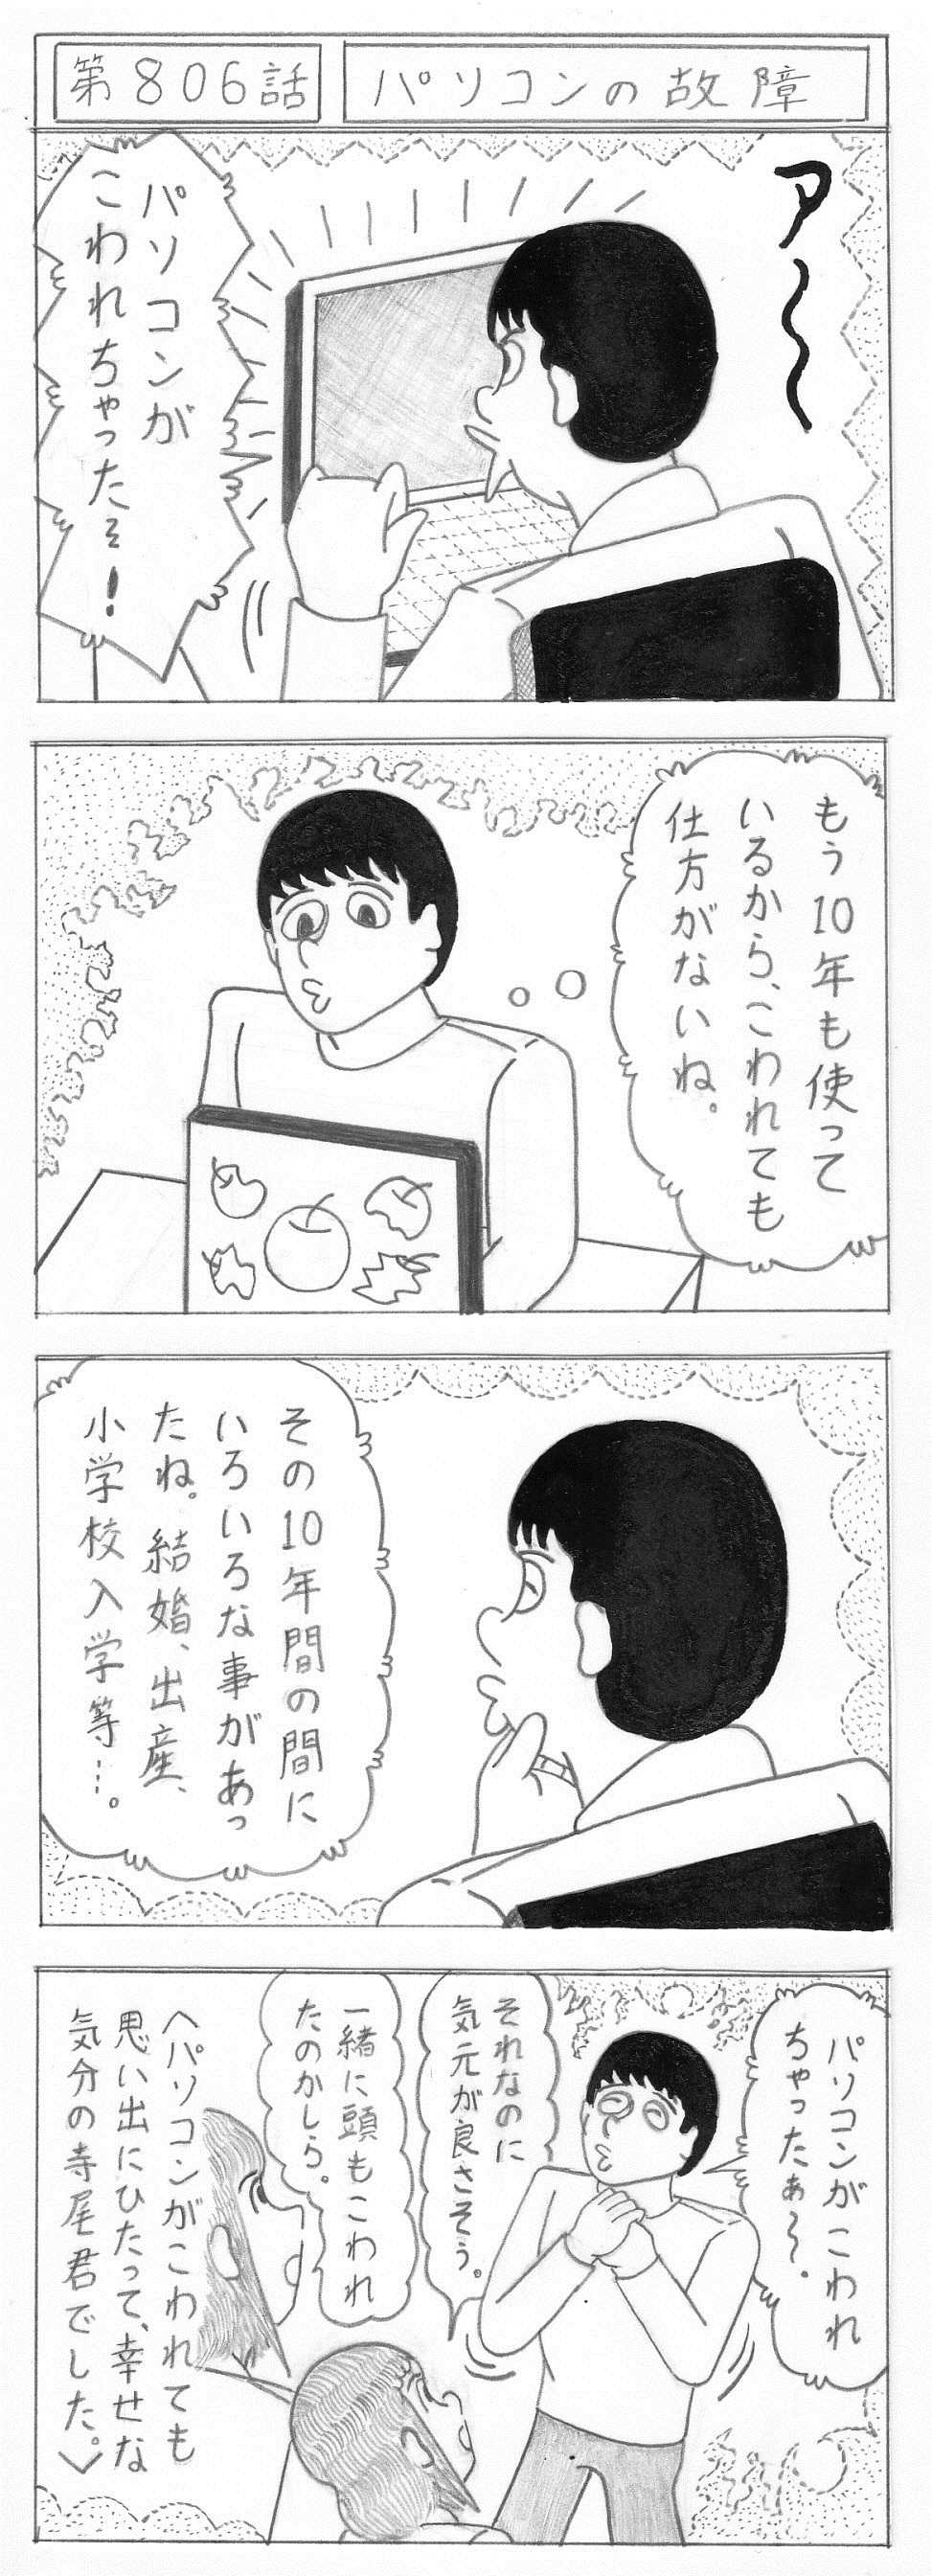 第806話
パソコンの故障
ア〜〜
パソコンが
こわれちゃったぞ!
もう10年も使って
いるから、こわれても
仕方がないね。
その10年間の間に
いろいろな事があっ
たね。結婚、出産、
小学校入学等…。
パソコンがこわれ
ちゃったぁ〜。
それなのに
気元が良さそう。
一緒に頭もこわれ
たのかしら。
〈パソコンがこわれても
思い出にひたって、幸せな
気分の寺尾君でした。〉